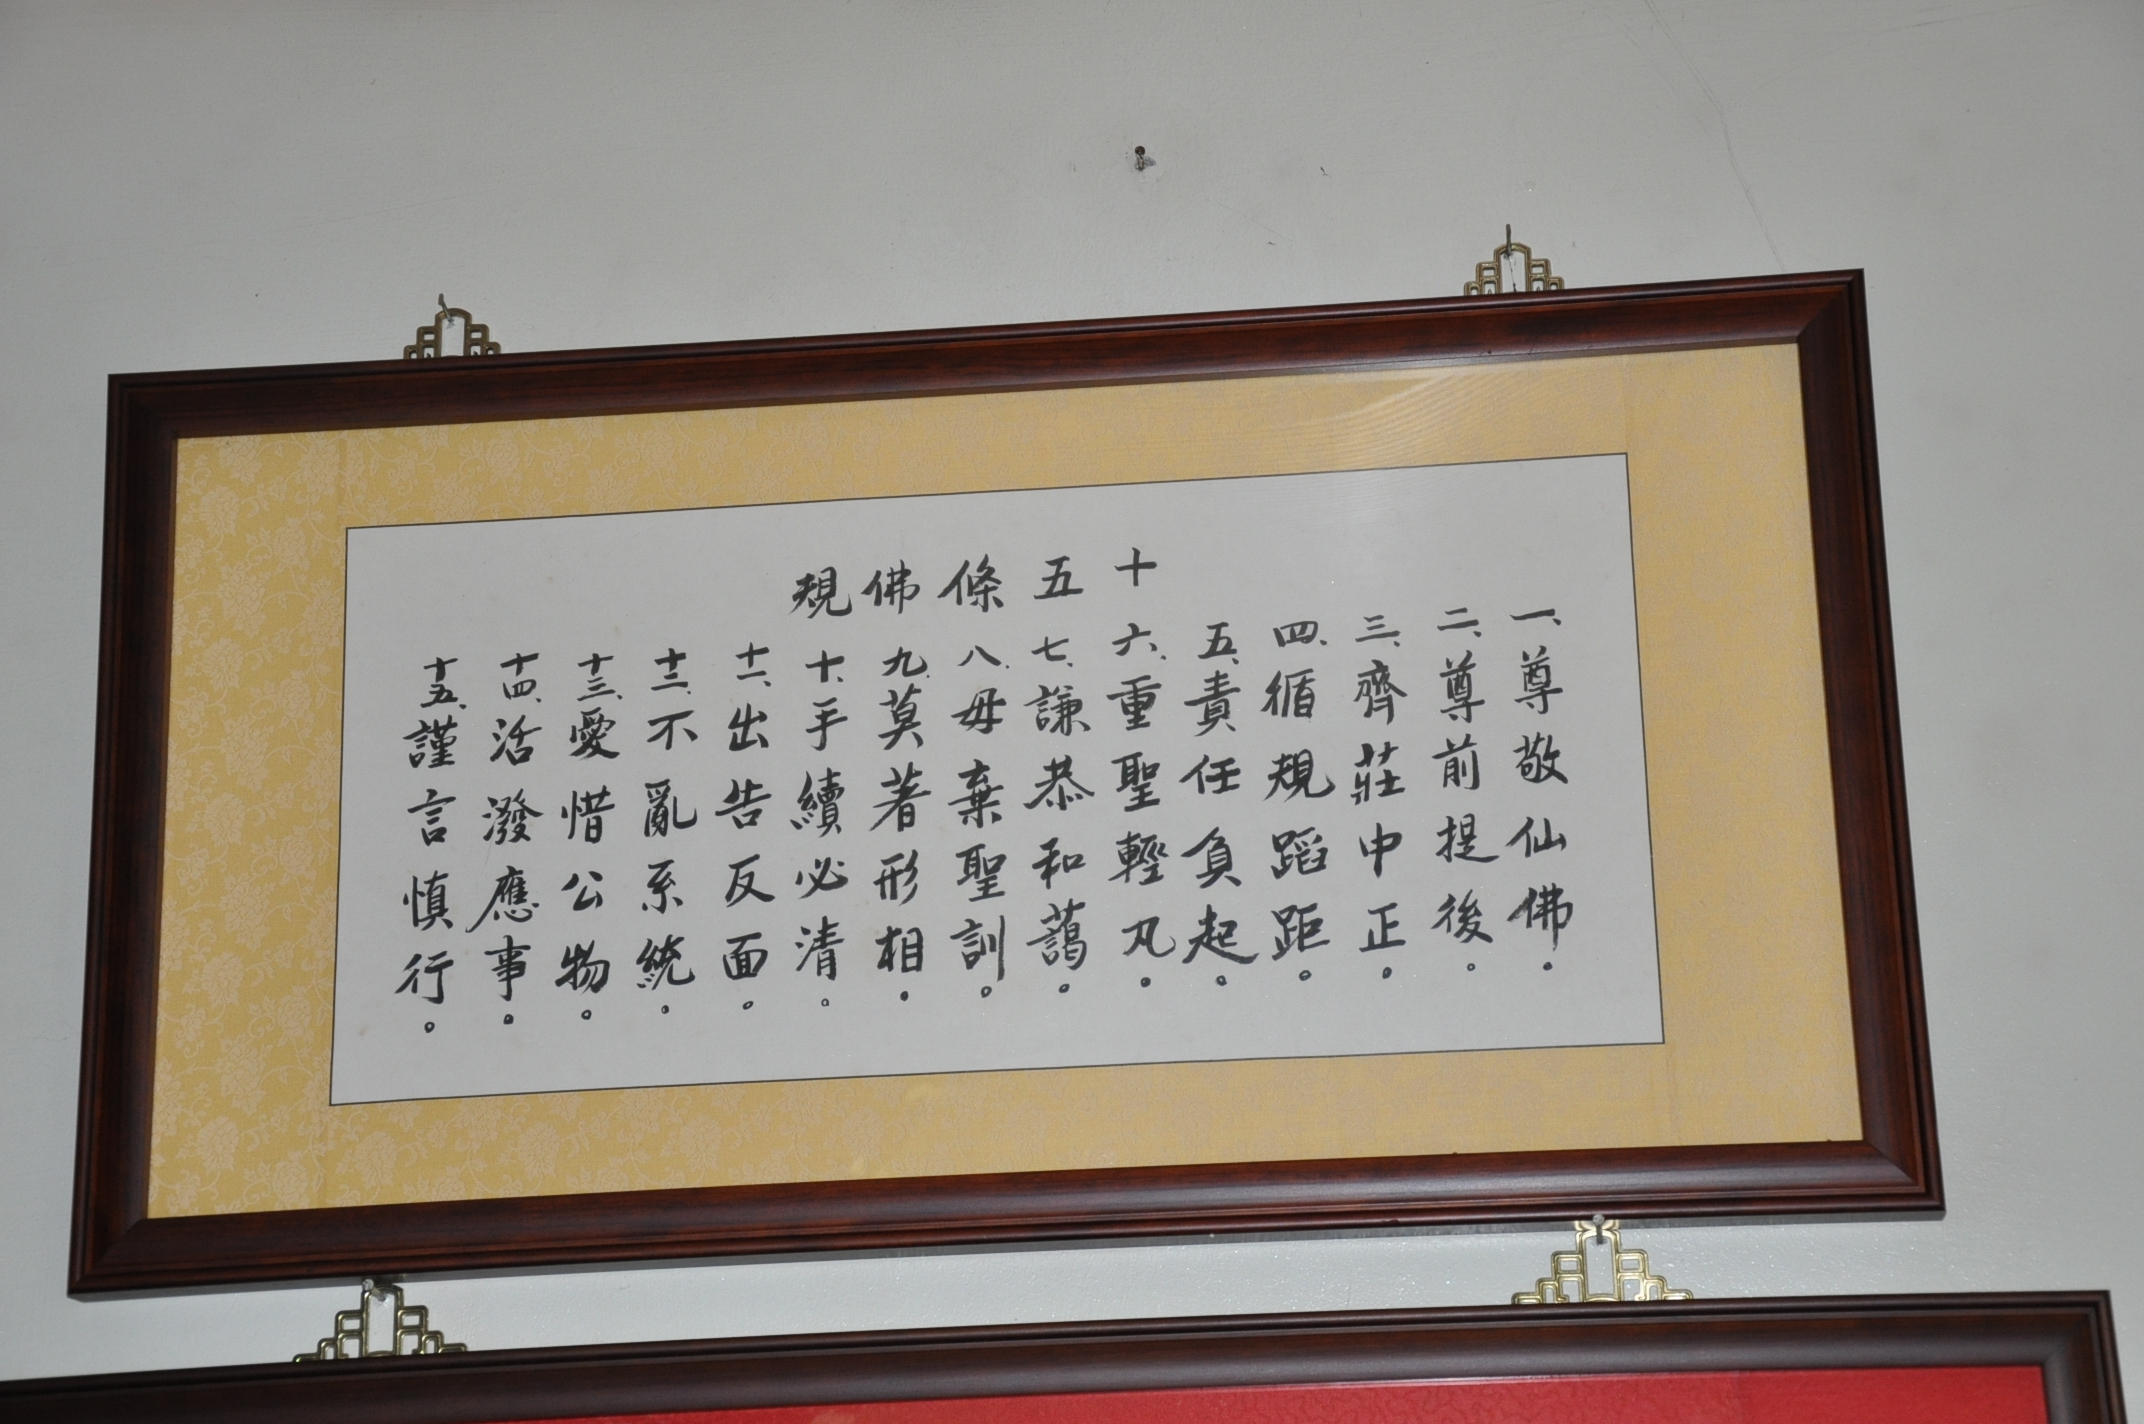 十五條佛規
一、尊敬仙佛。
二、尊前提後。
三、齊莊中正。
四、循規蹈距。
五、責任負起。
六、重聖輕凡。
七、謙恭和藹。
八、毋棄聖訓。
九、莫著形相。
十、手續必清。
十一、出告反面。
十二、不亂系統。
十三、愛惜公物。
十四、活潑應事。
十五、謹言慎行。